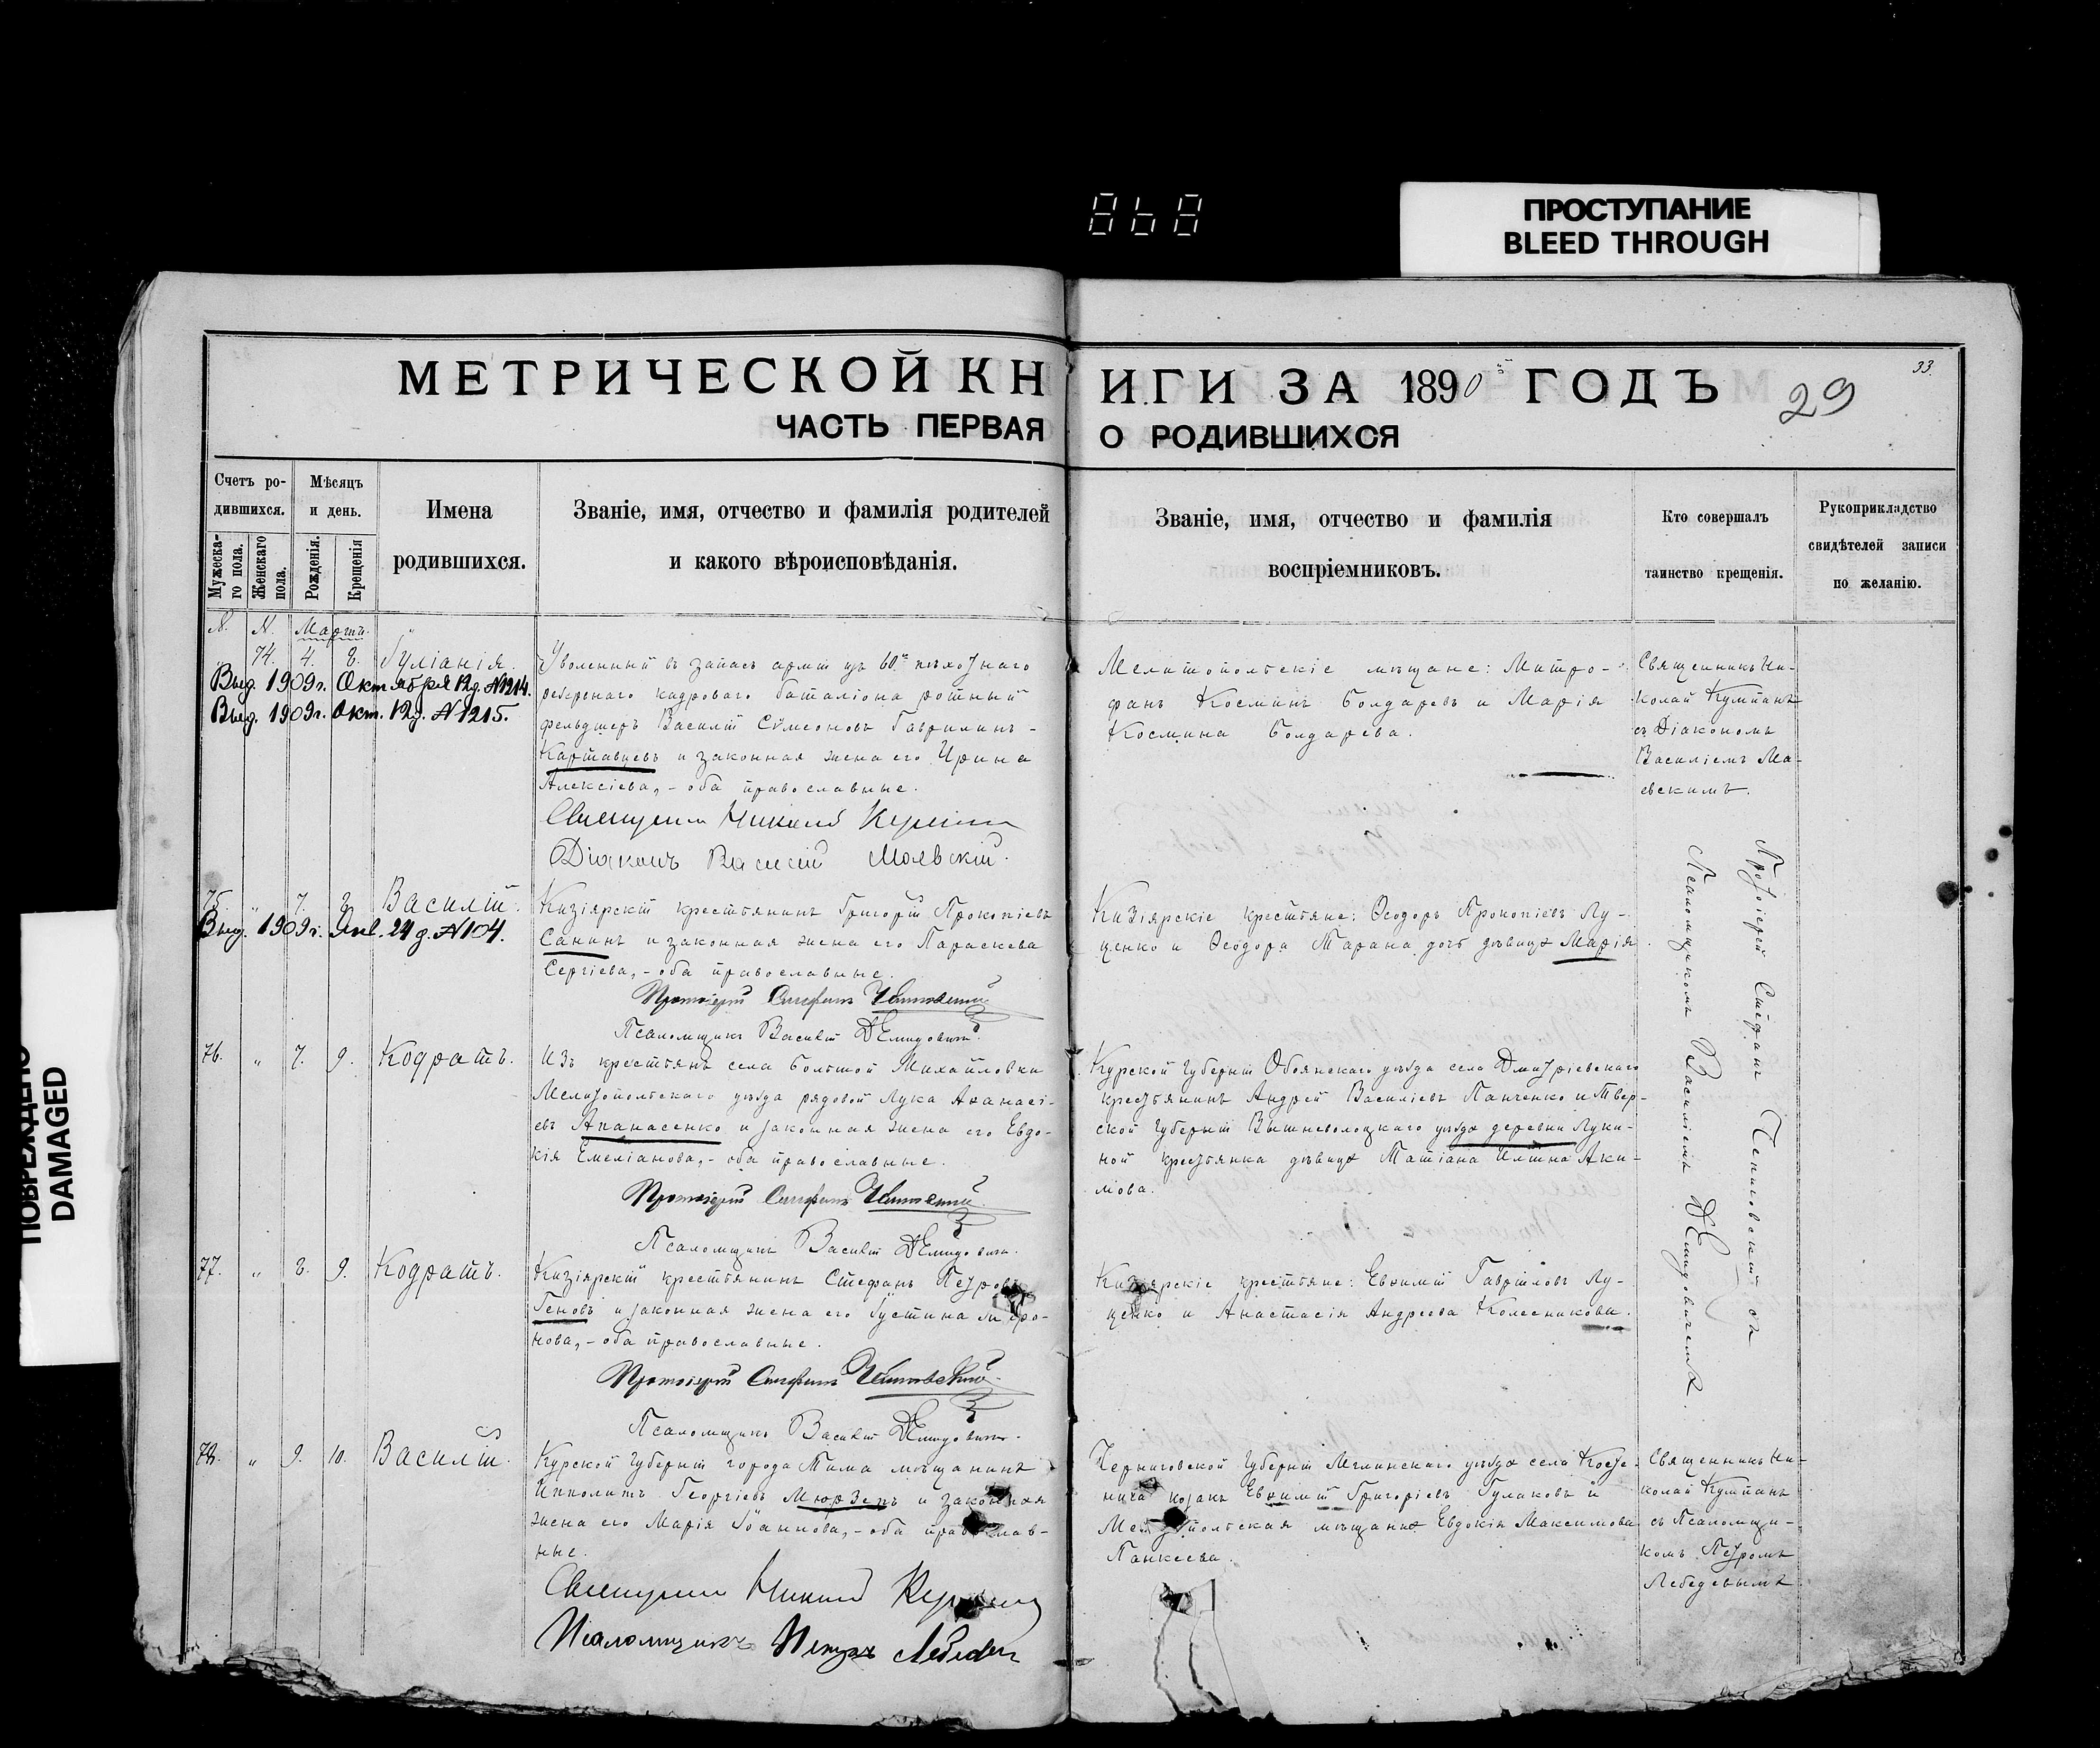 868
ПРОСТУПАНИЕ
BLEED THROUGH
ПОВРЕЖДЕНО
DAMAGED
МЕТРИЧЕСКОЙ КНИГИ ЗА 1890й ГОДЪ
33.
29
ЧАСТЬ ПЕРВАЯ О РОДИВШИХСЯ
Счетъ ро-
дившихся.
Мужеска-
го пола.
Женскаго
пола.
Мѣсяцъ
и день.
Рожденія.
Крещенія
Имена
родившихся.
Званіе, имя, отчество и фамилія родителей
и какого вѣроисповѣданія.
Званіе, имя, отчество и фамилія
воспріемниковъ.
Кто совершалъ
таинство крещенія.
Рукоприкладство
свидѣтелей записи
по желанію.
N. N. Мартъ.
74. 4. 8. Іуліанія.
Выд. 1909 г. Октября 12 д. N 1214.
Выд. 1909 г. Окт. 12 д. N 1215.
Уволенный въ запасъ арміи изъ 60го пѣхотнаго
резервнаго кадроваго баталіона ротный
фельдшеръ Василій Сѵмеоновъ Гаврилинъ-
Картавцевъ и законная жена его Ирина
Алексіева,- оба православные.
Священникъ Николай
Діаконъ Василій Маевскій.
Мелитопольскіе мѣщане: Митро-
фанъ Косминъ Болдаревъ и Марія
Космина Болдарева.
Священникъ Ни-
колай
съ Діакономъ
Василіемъ Ма-
евскимъ.
75. " 7. 8. Василій.
Выд. 1909 г. Янв. 24 д. N 104.
Кизіярскій крестьянинъ Григорій Прокопіевъ
Санинъ и законная жена его Параскева
Сергіева,- оба православные.
Протоіерей Стефанъ
Псаломщикъ Василій Демидовичъ.
Кизіярскіе крестьяне: Ѳеодоръ Прокопіевъ Лу-
ценко и Ѳеодора Тарана дочь дѣвица Марія.
Протоіерей Стефанъ съ
Псаломщикомъ Василіемъ Демидовичемъ.
76. " 7. 9. Кодратъ.
Изъ крестьянъ села Большой Михайловки
Мелитопольскаго уѣзда рядовой Лука Аѳанасі-
евъ Апанасенко и законная жена его Евдо-
кія Емеліанова,- оба православные.
Протоіерей Стефанъ
Псаломщикъ Василій Демидовичъ.
Курской Губерніи Обоянскаго уѣзда села Дмитріевскаго
крестьянинъ Андрей Василіевъ Панченко и Твер-
ской Губерніи Вышневолоцкаго уѣзда деревни Луки-
ной крестьянка дѣвица Татіана Ильина Аки-
мова.
77. " 8. 9. Кодратъ.
Кизіярскій крестьянинъ Стефанъ Петровъ
Геновъ и законная жена его Іустина Миро-
нова,- оба православные.
Протоіерей Стефанъ
Псаломщикъ Василій Демидовичъ.
Кизіярскіе крестьяне: Евѳимій Гавріиловъ Лу-
ценко и Анастасія Андреева Колесникова.
78. " 9. 10. Василій.
Курской Губерніи города Тима мѣщанинъ
Ипполитъ Георгіевъ и законная
жена его Марія Іоаннова,- оба православ-
ные.
Священникъ Николай
Псаломщикъ Петръ Лебедевъ
Черниговской Губерніи Мглинскаго уѣзда села Косте-
нича козакъ Евѳимій Григоріевъ Гулаковъ и
Мелитопольская мѣщанка Евдокія Максимова
Панкеева.
Священникъ Ни-
колай
съ Псаломщи-
комъ Петромъ
Лебедевымъ